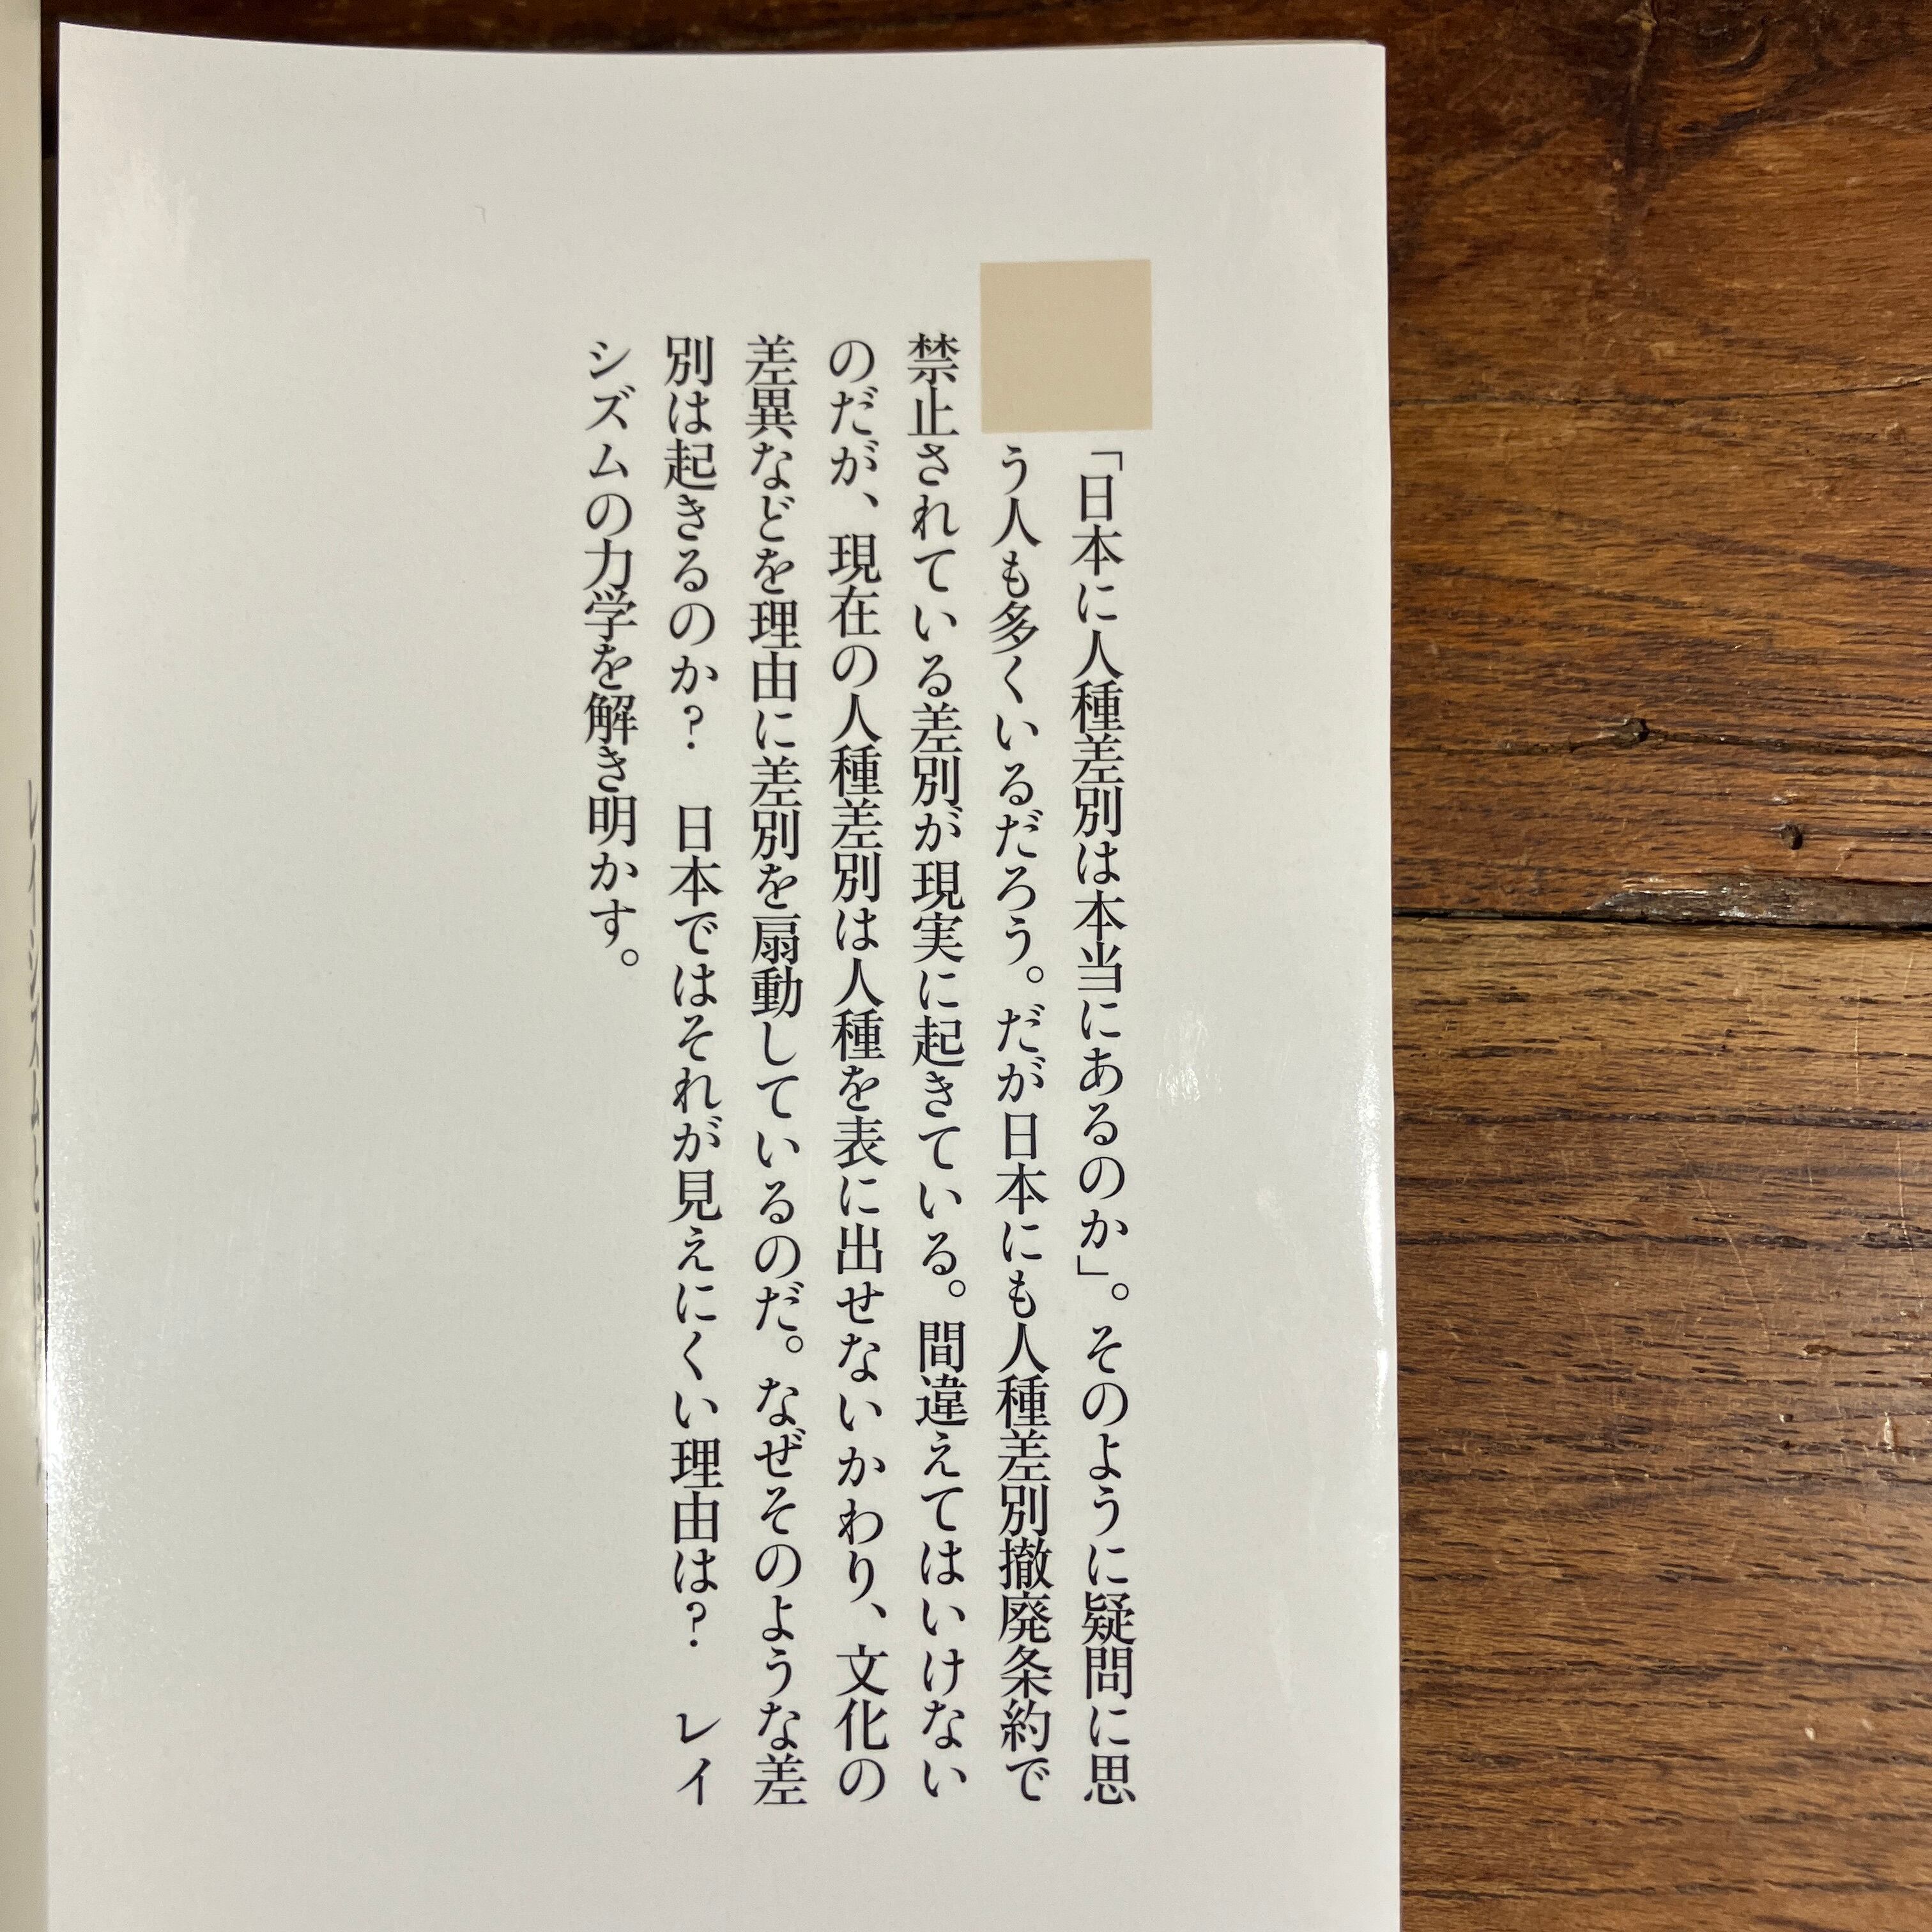 「日本に人種差別は本当にあるのか」。そのように疑問に思
う人も多くいるだろう。だが日本にも人種差別撤廃条約で
禁止されている差別が現実に起きている。間違えてはいけない
のだが、現在の人種差別は人種を表に出せないかわり、文化の
差異などを理由に差別を扇動しているのだ。なぜそのような差
別は起きるのか？　日本ではそれが見えにくい理由は？　レイ
シズムの力学を解き明かす。
レイシズムとは